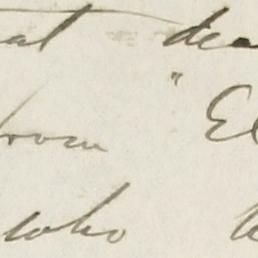 at dea
from " El
who h